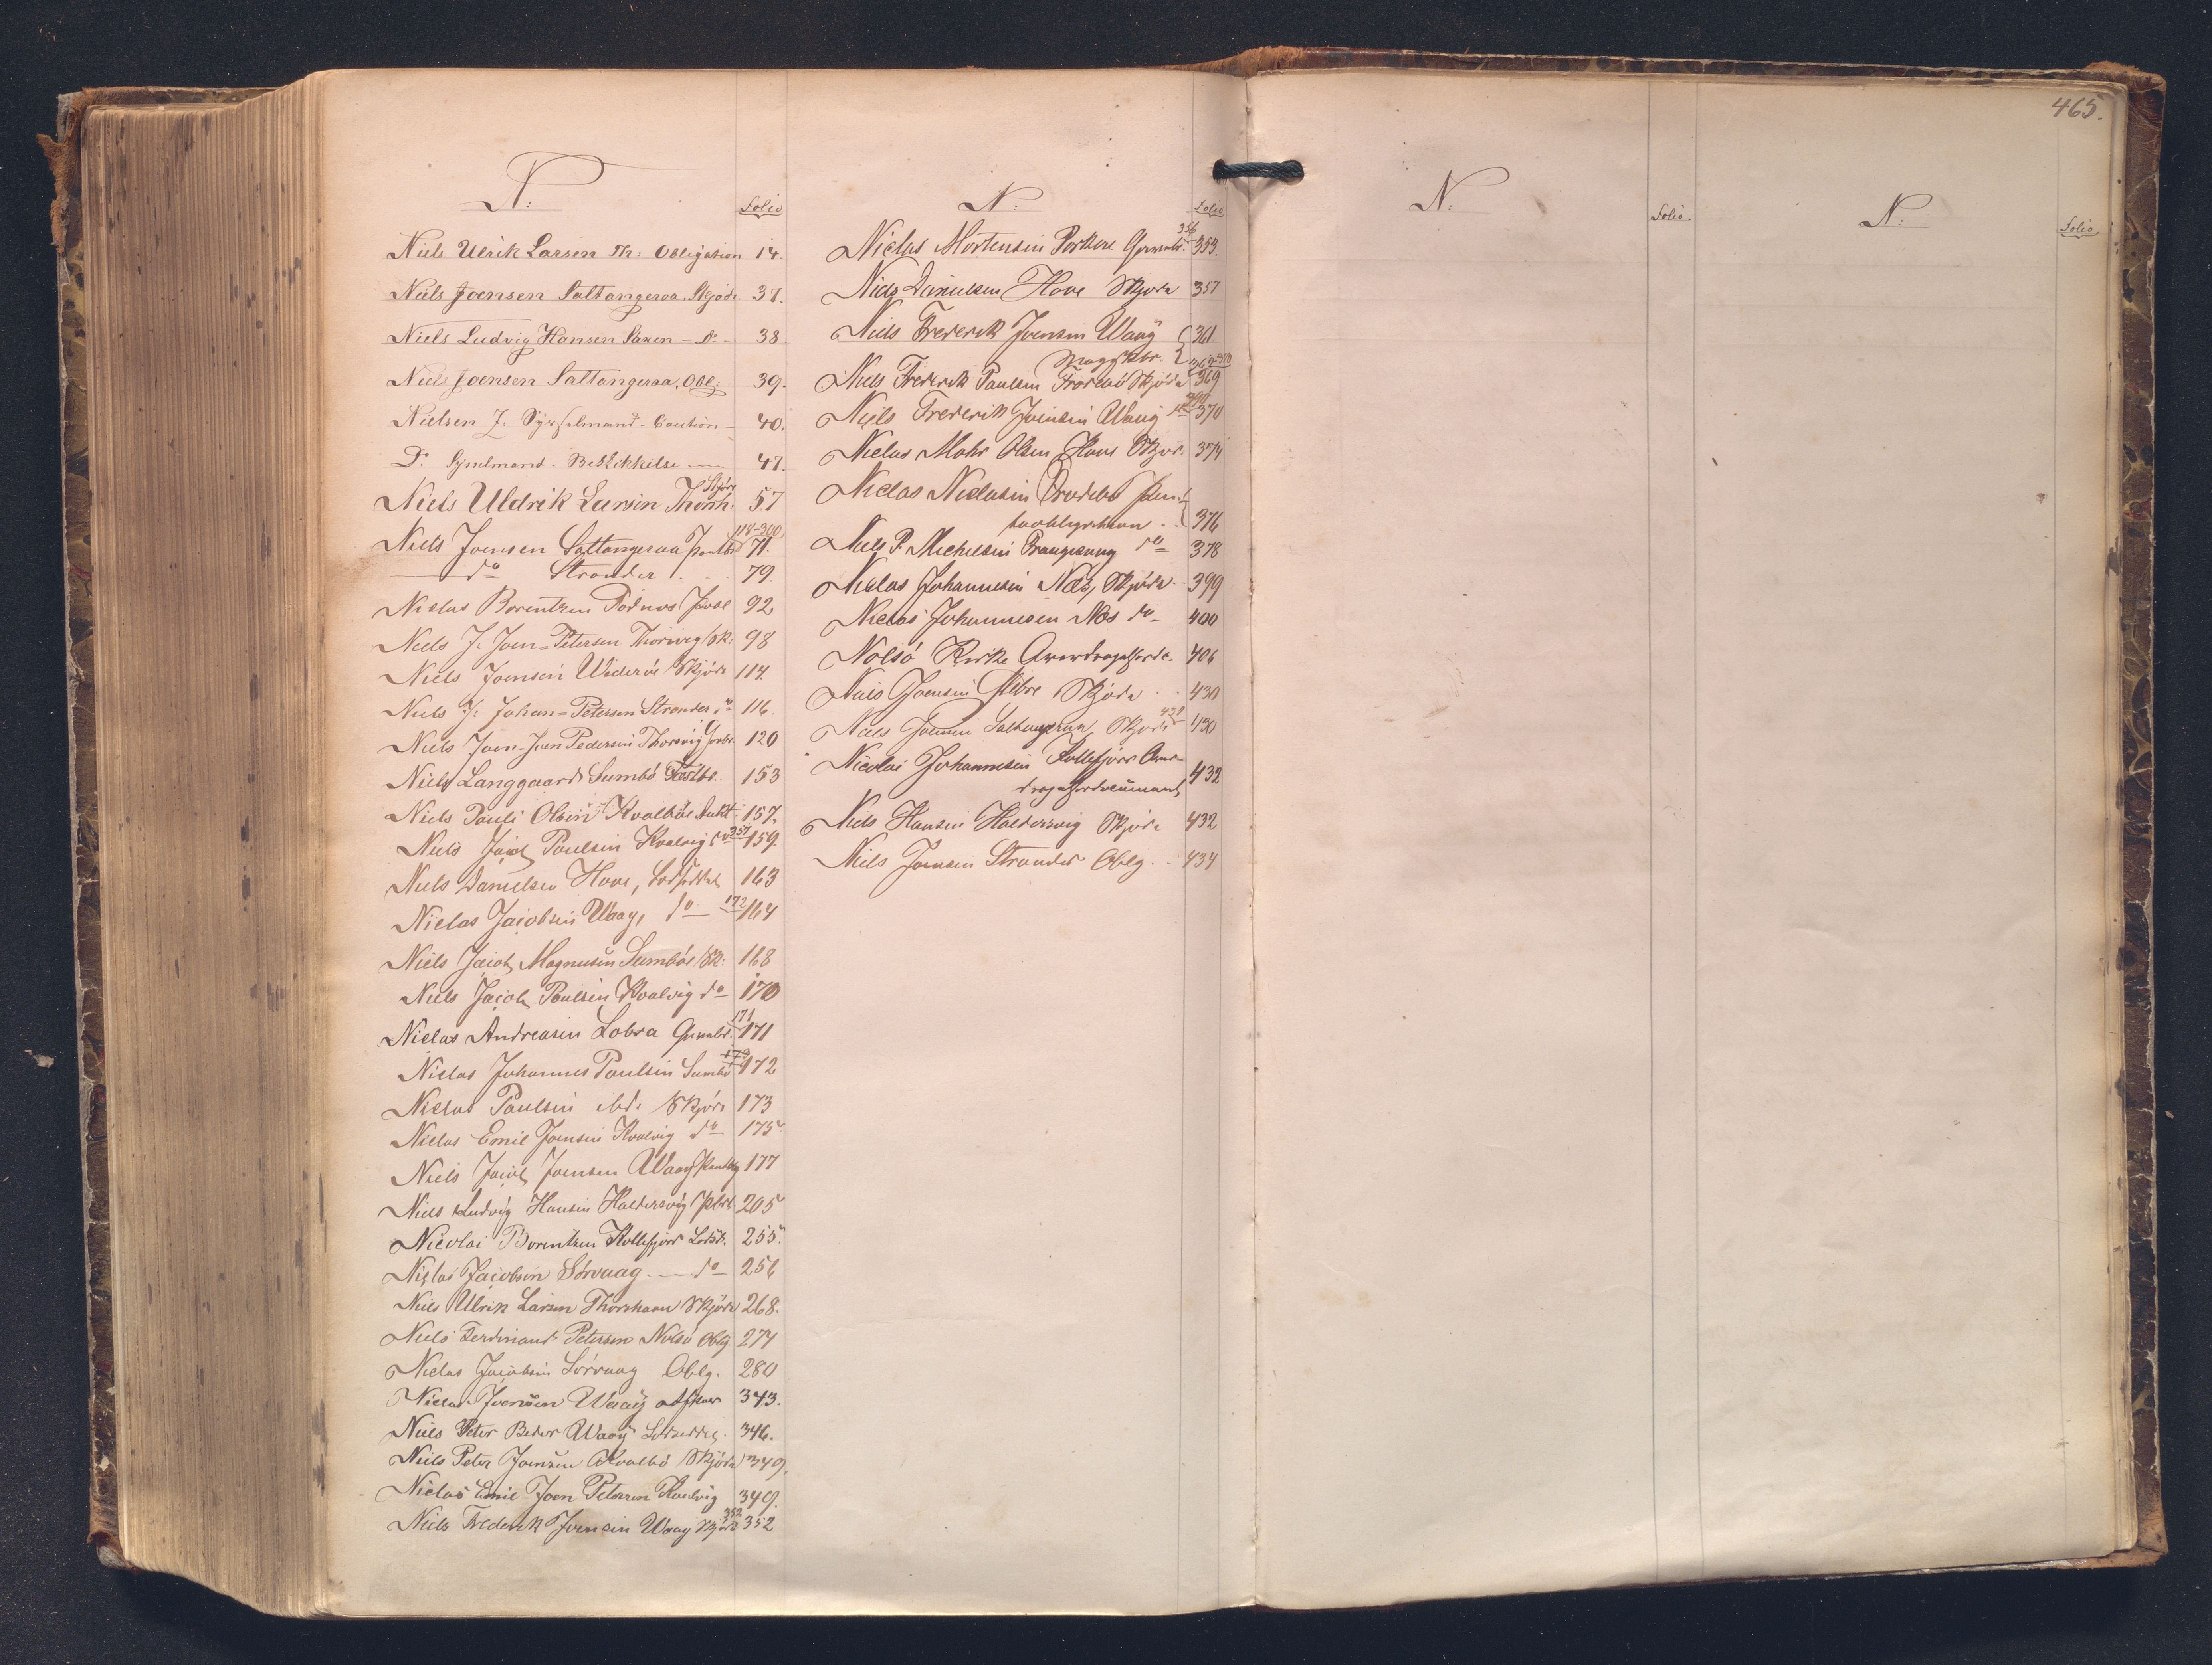 N:
Folio
Niels Ulrik Larsen Th: Obligation 14.
Niels Joensen Saltangeraa, Skjöde 37.
Niels Ludvig Hansen Saxen - Do - 38
Niels Joensen Saltangeraa, Obl: 39.
Nielsen J. Sysselmand. Caution - 40.
Do Sysselmand. Beskikkelse 47.
Niels Uldrik Larsen Thorsh. Skjöde 57
Niels Joensen Saltangeraa 114-300 71.
do Strander . . 79.
Niclas Berentzen 92
Niels J. Joen-Petersen Thorsvig Sk: 98
Niels Joensen Wideröe Skjöde 114.
Niels J: Johan-Petersen Strander do 116.
Niels Joen-Joen Pedersen Thorsvig 120
Niels Langgaard Sumbö 153
Niels Pauli Olsen Kvalböe Aukt. 157.
Niels Jacob Paulsen Kvalvig do 357 159.
Niels Danielsen Hove, 163
Niclas Jacobsen Waag, do 172 164
Niels Jacob Magnussen Sumböe Sk: 168
Niels Jacob Paulsen Kvalvig do 170
Niclas Andreasen Lobra 171 171
Niclas Johannes Paulsen Sumbö 172
Niclas Paulsen ibd. Skjöde 173
Niclas Emil Joensen Kvalvig do 175
Niels Jacob Joensen Waag 177
Niels Ludvig Hansen Haldersvig 205
Nicolai Berentzen Kollefjord 255.
Niclas Jacobsen Sörvaag do 256
Niels Ulrik Larsen Thorshavn Skjöde 268.
Niels Ferdinand Petersen Nolsö Oblg. 274
Niclas Jacobsen Sörvaag Oblg. 280
Niclas Joensen Waag 343.
Niels Peter Waag 346.
Niels Peter Joensen Kvalbö Skjöde 349.
Niclas Emil Joen Petersen Kvalvig 349.
Niels Frederik Joensen Waag Skjöde 352 352
N:
Folio
Niclas Mortensen Porkere 356 353.
Niels Danielsen Hove Skjöde 357
Niels Frederik Joensen Waag 361
Niels Frederik Paulsen Frodebö Skjöde 369
Niels Frederik Joensen Waag do 390 370
Niclas Mohr Olsen Hove Skjöde 374
Niclas Niclasen Frodebö
376
Niels P. Michelsen do 378
Niclas Johannesen Næs, Skjöde 399
Niclas Johannesen Næs do 400
Nolsö Kirke 406
Niels Joensen Skjöde . . 430
Niels Joensen Saltangeraa Skjöde 431 430
Nicolai Johannesen Kollefjord
432
Niels Hansen Haldersvig Skjöde 432
Niels Joensen Strander Oblg. . 434
465.
N:
Folio.
N:
Folio